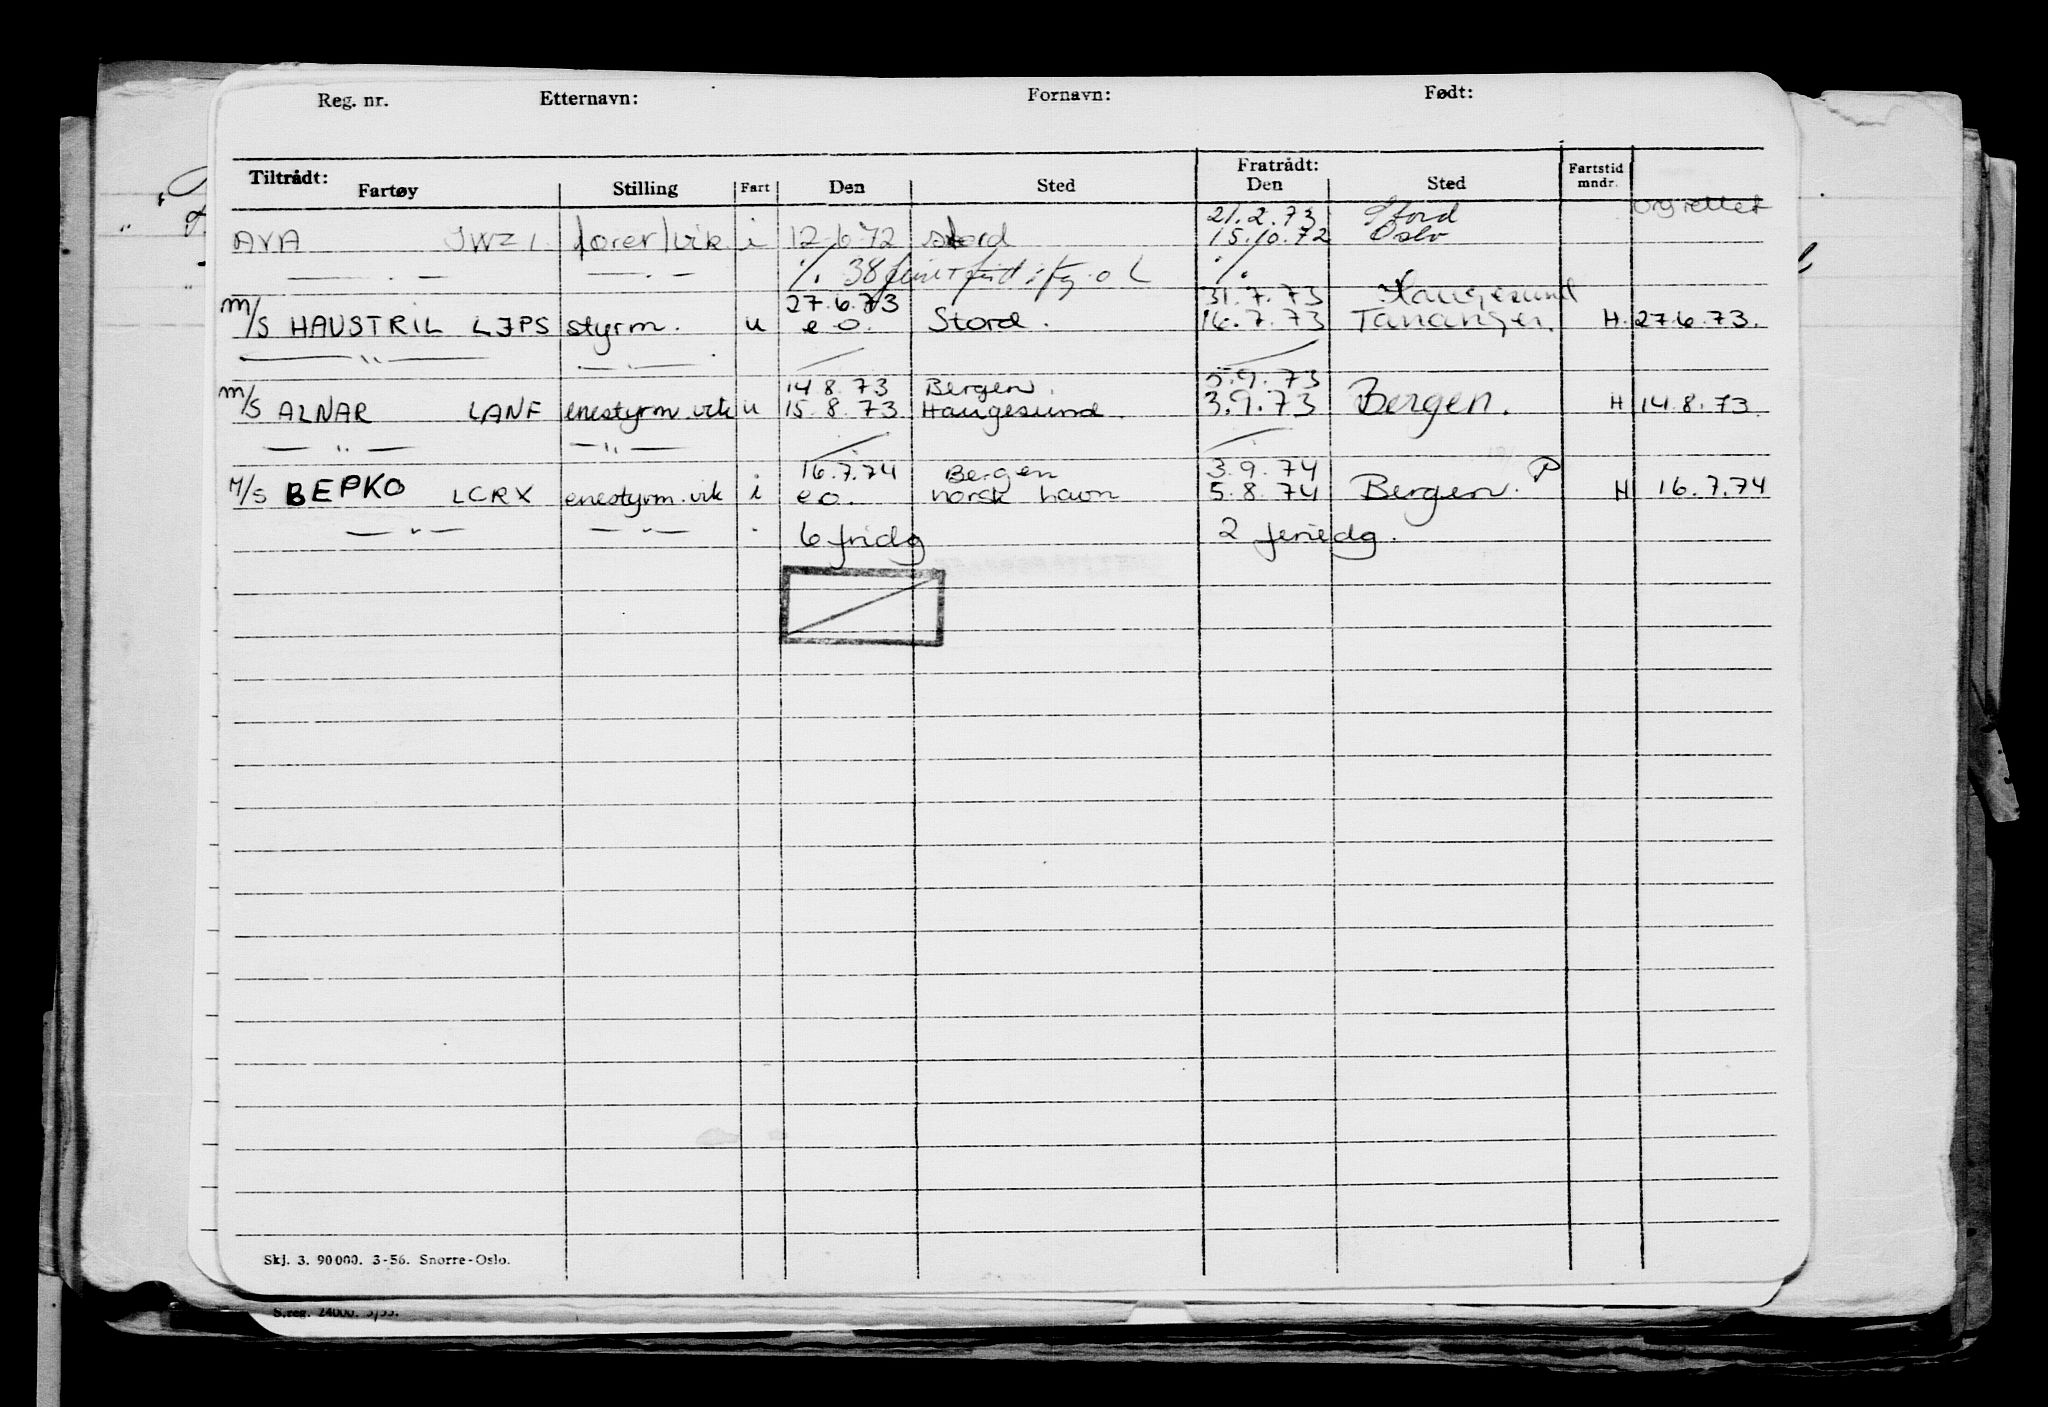 Reg. nr. Etternavn: Fornavn: Født:
Tiltrådt: Fratrådt:
Fartøy Stilling Fart Den Sted Den Sted Fartstid mndr.
21.2.73 Stord
AVA fører/vik i 12.6.72 Stord 15.10.72 Oslo
— . — — . — ./. 38 ./.
27.6.73 31.7.73 Haugesund
M/S HAUSTRIL LJPS styrm. u e.o. Stord. 16.7.73 Tananger. H. 27.6.73.
— " — — " —
14.8.73 Bergen. 5.9.73
M/S ALNAR LANF enestyrm.vik u 15.8.73 Haugesund. 3.9.73 Bergen. H 14.8.73.
— " — — " —
16.7.74 Bergen 3.9.74
M/S BEPKO LCRX enestyrm.vik i e.o. norsk havn 5.8.74 Bergen. P H 16.7.74
— " — — " — 6 fridg 2 feriedg.
Skj. 3. 90000. 3-56. Snorre-Oslo.
S.reg. 24000. 3/55.